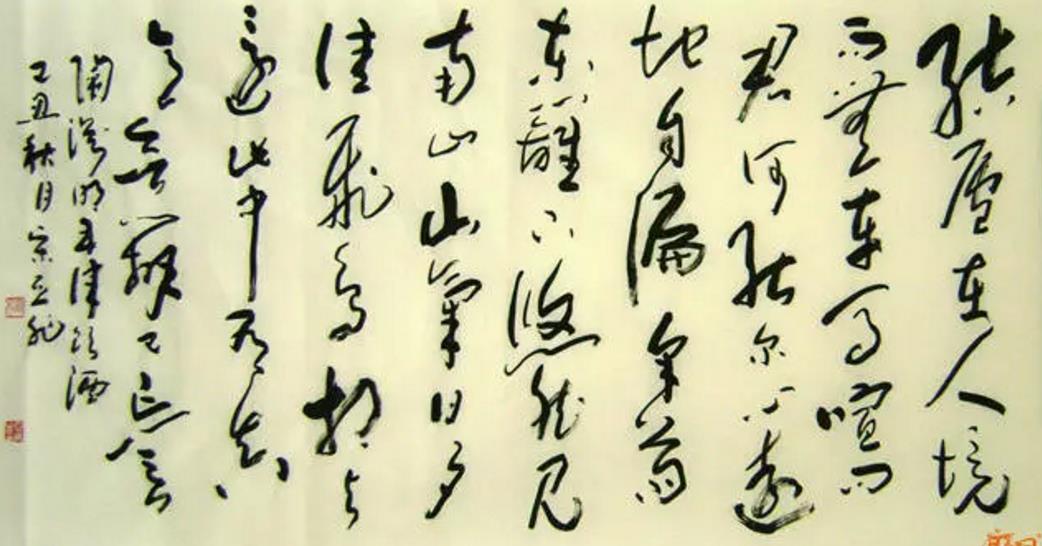 結廬在人境
而無車馬喧問
君何能尔心遠
地自偏采菊
東籬下悠然見
南山山氣日夕
佳飛鳥相与
還此中有真
意欲辨已忘言
陶淵明五律飲酒
己丑秋月